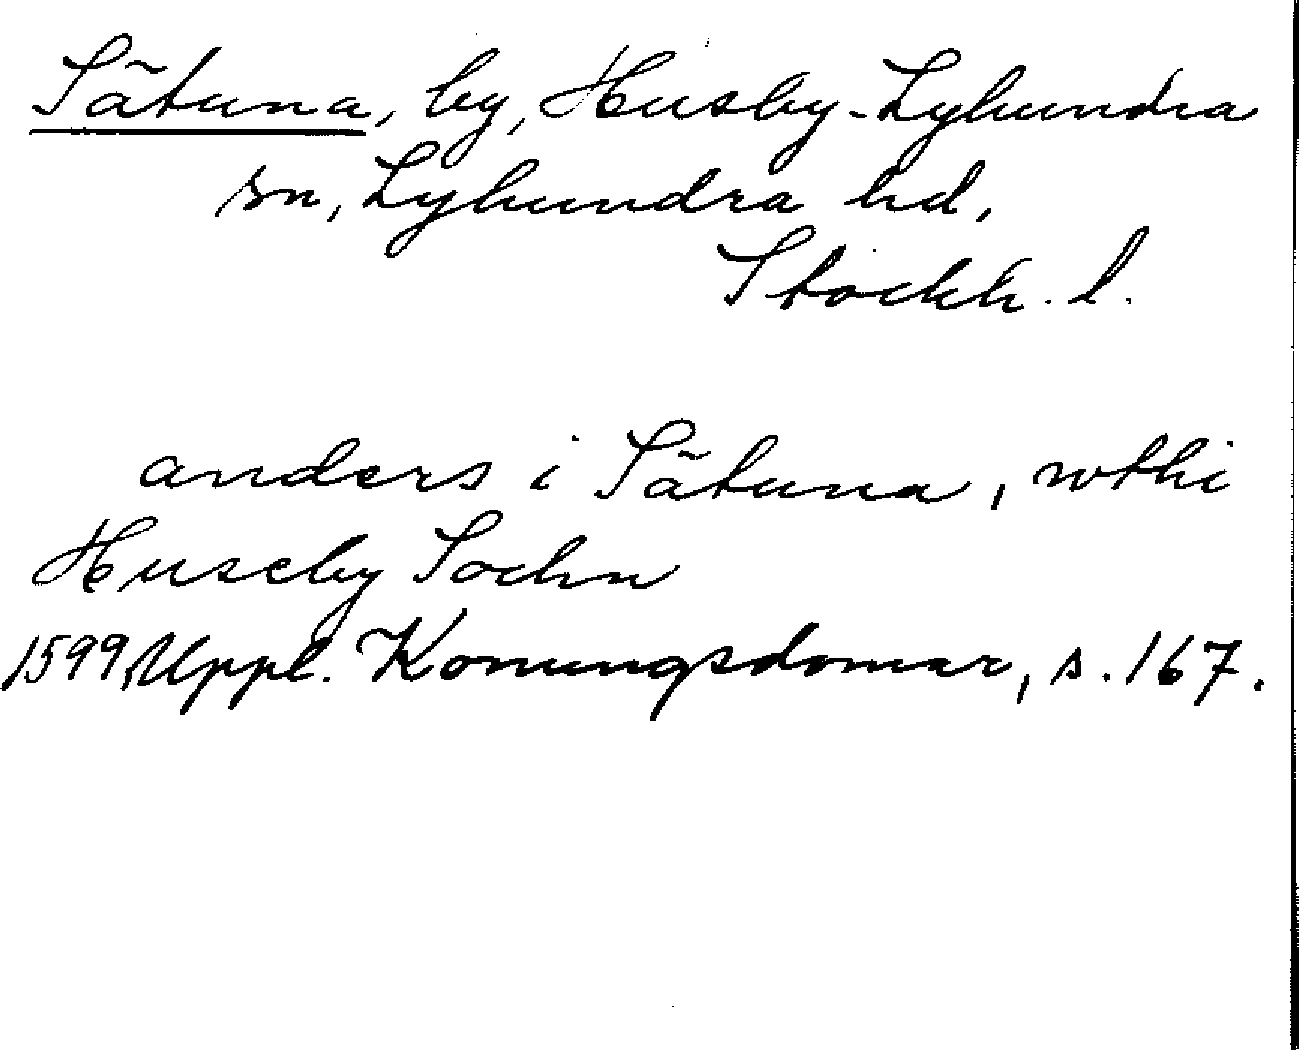 Sätuna, by, Husby-Lyhundra
sn, Lyhundra hd,
Stockh. l.
anders i Sätuna, wthi
Huseby Sochn
1599, Uppl. Konungsdomar, s. 167.